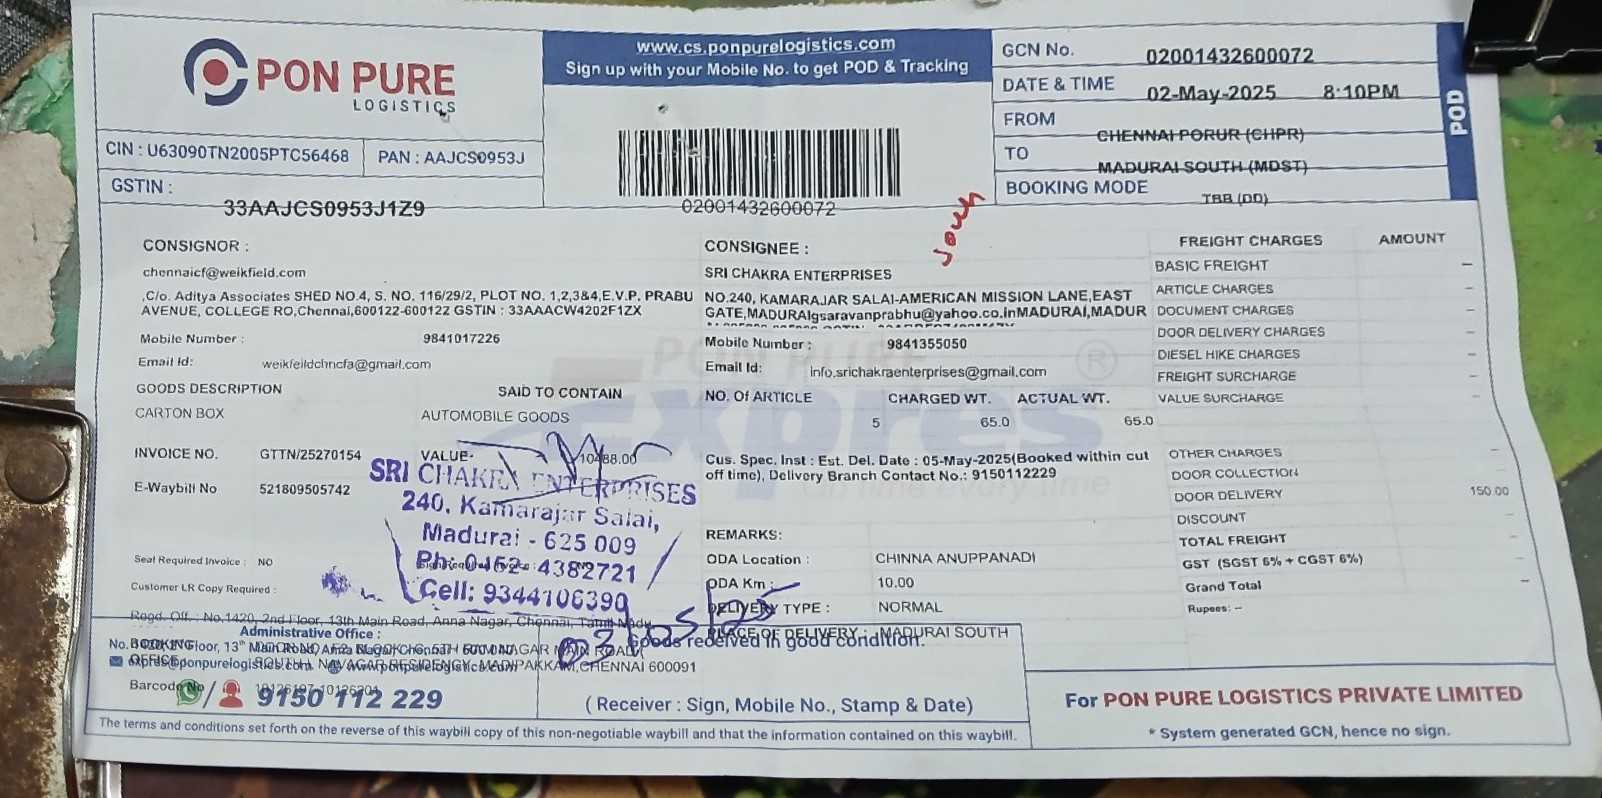 PON PURE
LOGISTICS
www.cs.ponpurelogistics.com
Sign up with your Mobile No. to get POD & Tracking
GCN No. 02001432600072
DATE & TIME 02-May-2025 8:10PM
FROM CHENNAI PORUR (CHPR)
TO MADURAI SOUTH (MDST)
BOOKING MODE TBB (DD)
POD
CIN : U63090TN2005PTC56468 PAN : AAJCS0953J
GSTIN : 33AAJCS0953J1Z9
02001432600072
South
CONSIGNOR :
chennaicf@weikfield.com
,C/o. Aditya Associates SHED NO.4, S. NO. 116/29/2, PLOT NO. 1,2,3&4,E.V.P. PRABU
AVENUE, COLLEGE RO,Chennai,600122-600122 GSTIN : 33AAACW4202F1ZX
Mobile Number : 9841017226
Email Id: weikfeildchncfa@gmail.com
GOODS DESCRIPTION SAID TO CONTAIN
CARTON BOX AUTOMOBILE GOODS
INVOICE NO. GTTN/25270154 VALUE 10488.00
E-Waybill No 521809505742
Seal Required Invoice : NO
Customer LR Copy Required :
CONSIGNEE :
SRI CHAKRA ENTERPRISES
NO.240, KAMARAJAR SALAI-AMERICAN MISSION LANE,EAST
GATE,MADURAIgsaravanprabhu@yahoo.co.inMADURAI,MADUR
Mobile Number : 9841355050
Email Id: Info.srichakraenterprises@gmail.com
NO. Of ARTICLE CHARGED WT. ACTUAL WT.
5 65.0 65.0
PON PURE
Expres
On time every time
Cus. Spec. Inst : Est. Del. Date : 05-May-2025(Booked within cut
off time), Delivery Branch Contact No.: 9150112229
REMARKS:
ODA Location : CHINNA ANUPPANADI
ODA Km : 10.00
DELIVERY TYPE : NORMAL
PLACE OF DELIVERY MADURAI SOUTH
FREIGHT CHARGES AMOUNT
BASIC FREIGHT –
ARTICLE CHARGES –
DOCUMENT CHARGES –
DOOR DELIVERY CHARGES –
DIESEL HIKE CHARGES –
FREIGHT SURCHARGE –
VALUE SURCHARGE –
OTHER CHARGES –
DOOR COLLECTION –
DOOR DELIVERY 150.00
DISCOUNT –
TOTAL FREIGHT –
GST (SGST 6% + CGST 6%) –
Grand Total –
Rupees: –
SRI CHAKRA ENTERPRISES
240, Kamarajar Salai,
Madurai - 625 009
Ph: 0452- 4382721
Cell: 9344106390
03/05/25
Regd. Off. : No.1420, 2nd Floor, 13th Main Road, Anna Nagar, Chennai, Tamil Nadu
Administrative Office :
BOOKING
OFFICE
expres@ponpurelogistics.com www.ponpurelogistics.com
MADIPAKKAM,CHENNAI 600091
Barcode No
9150 112 229
Goods received in good condition.
( Receiver : Sign, Mobile No., Stamp & Date)
For PON PURE LOGISTICS PRIVATE LIMITED
* System generated GCN, hence no sign.
The terms and conditions set forth on the reverse of this waybill copy of this non-negotiable waybill and that the information contained on this waybill.